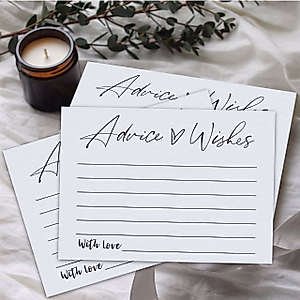 Advice ♡ Wishes
Advice ♡ Wishes
With love
Advice
With love